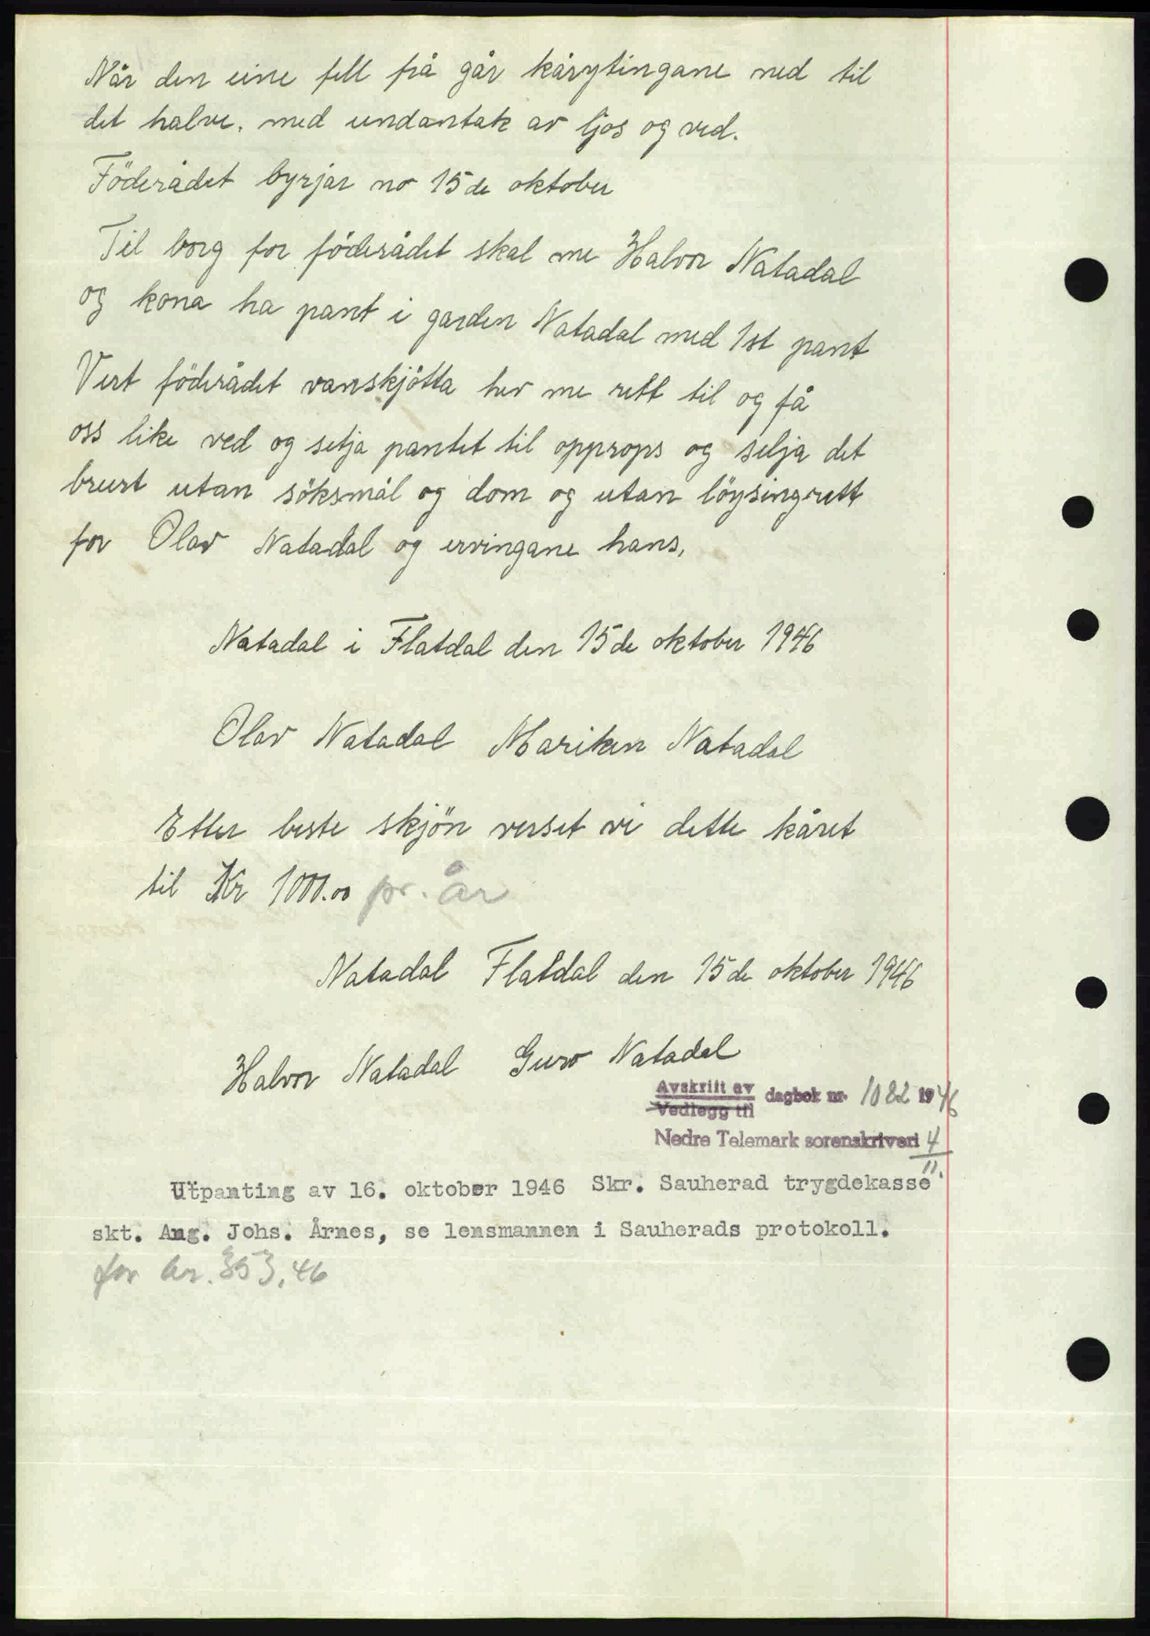 Når den eine fell frå går kårytingane ned til
det halve. med undantak av ljos og ved.
Föderådet byrjar no 15de oktober
Til borg for föderådet skal me Halvor Natadal
og kona ha pant i garden Natadal med 1st pant
Vert föderådet vanskjötta hev me rett til og få
oss like ved og setja pantet til opprops og selja det
burt utan söksmål og dom og utan löysingsrett
for Olav Natadal og ervingane hans.
Natadal i Flatdal den 15de oktober 1946
Olav Natadal Mariken Natadal
Etter beste skjön verset vi dette kåret
til Kr 1000.00 pr. år
Natadal Flatdal den 15de oktober 1946
Halvor Natadal Guro Natadal
Avskrift av
Vedlegg til dagbok nr. 1082 1946
Nedre Telemark sorenskriveri 4/11.
Utpanting av 16. oktober 1946 Skr. Sauherad trygdekasse
skt. Ang. Johs. Årnes, se lensmannen i Sauherads protokoll.
for kr. 353,46